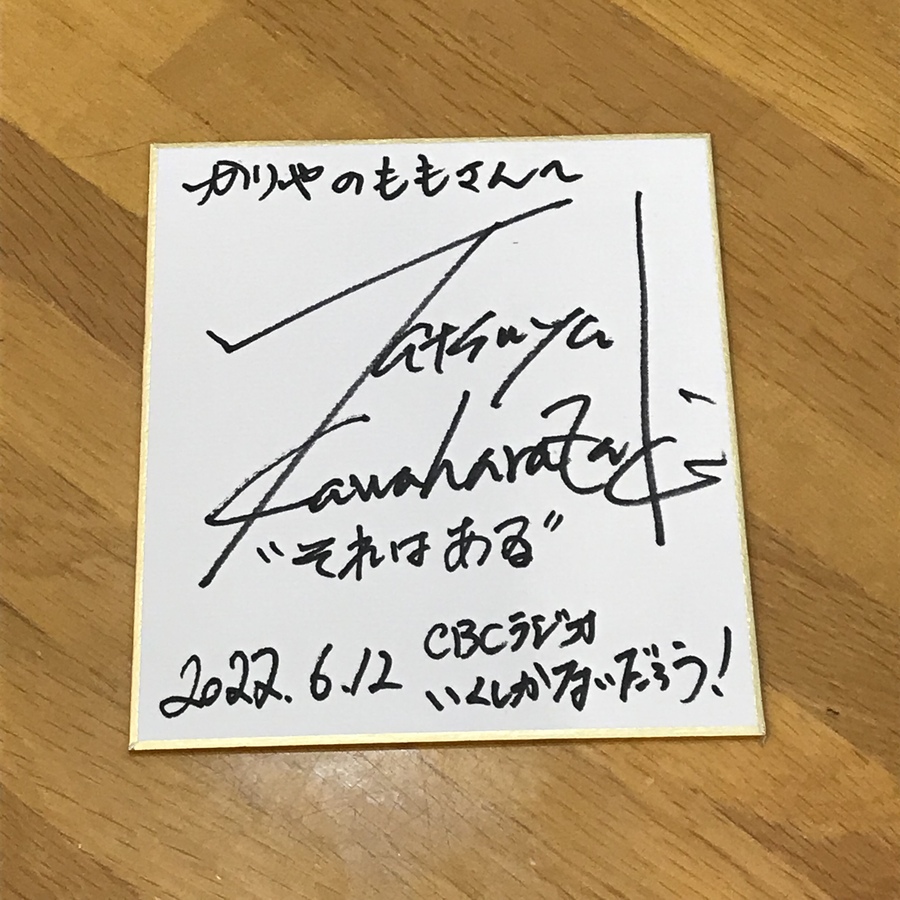 かりやのももさんへ
Tatsuya
Kawaharazaki
"それはある"
2022.6.12
CBCラジオ
いくしかないだろう!